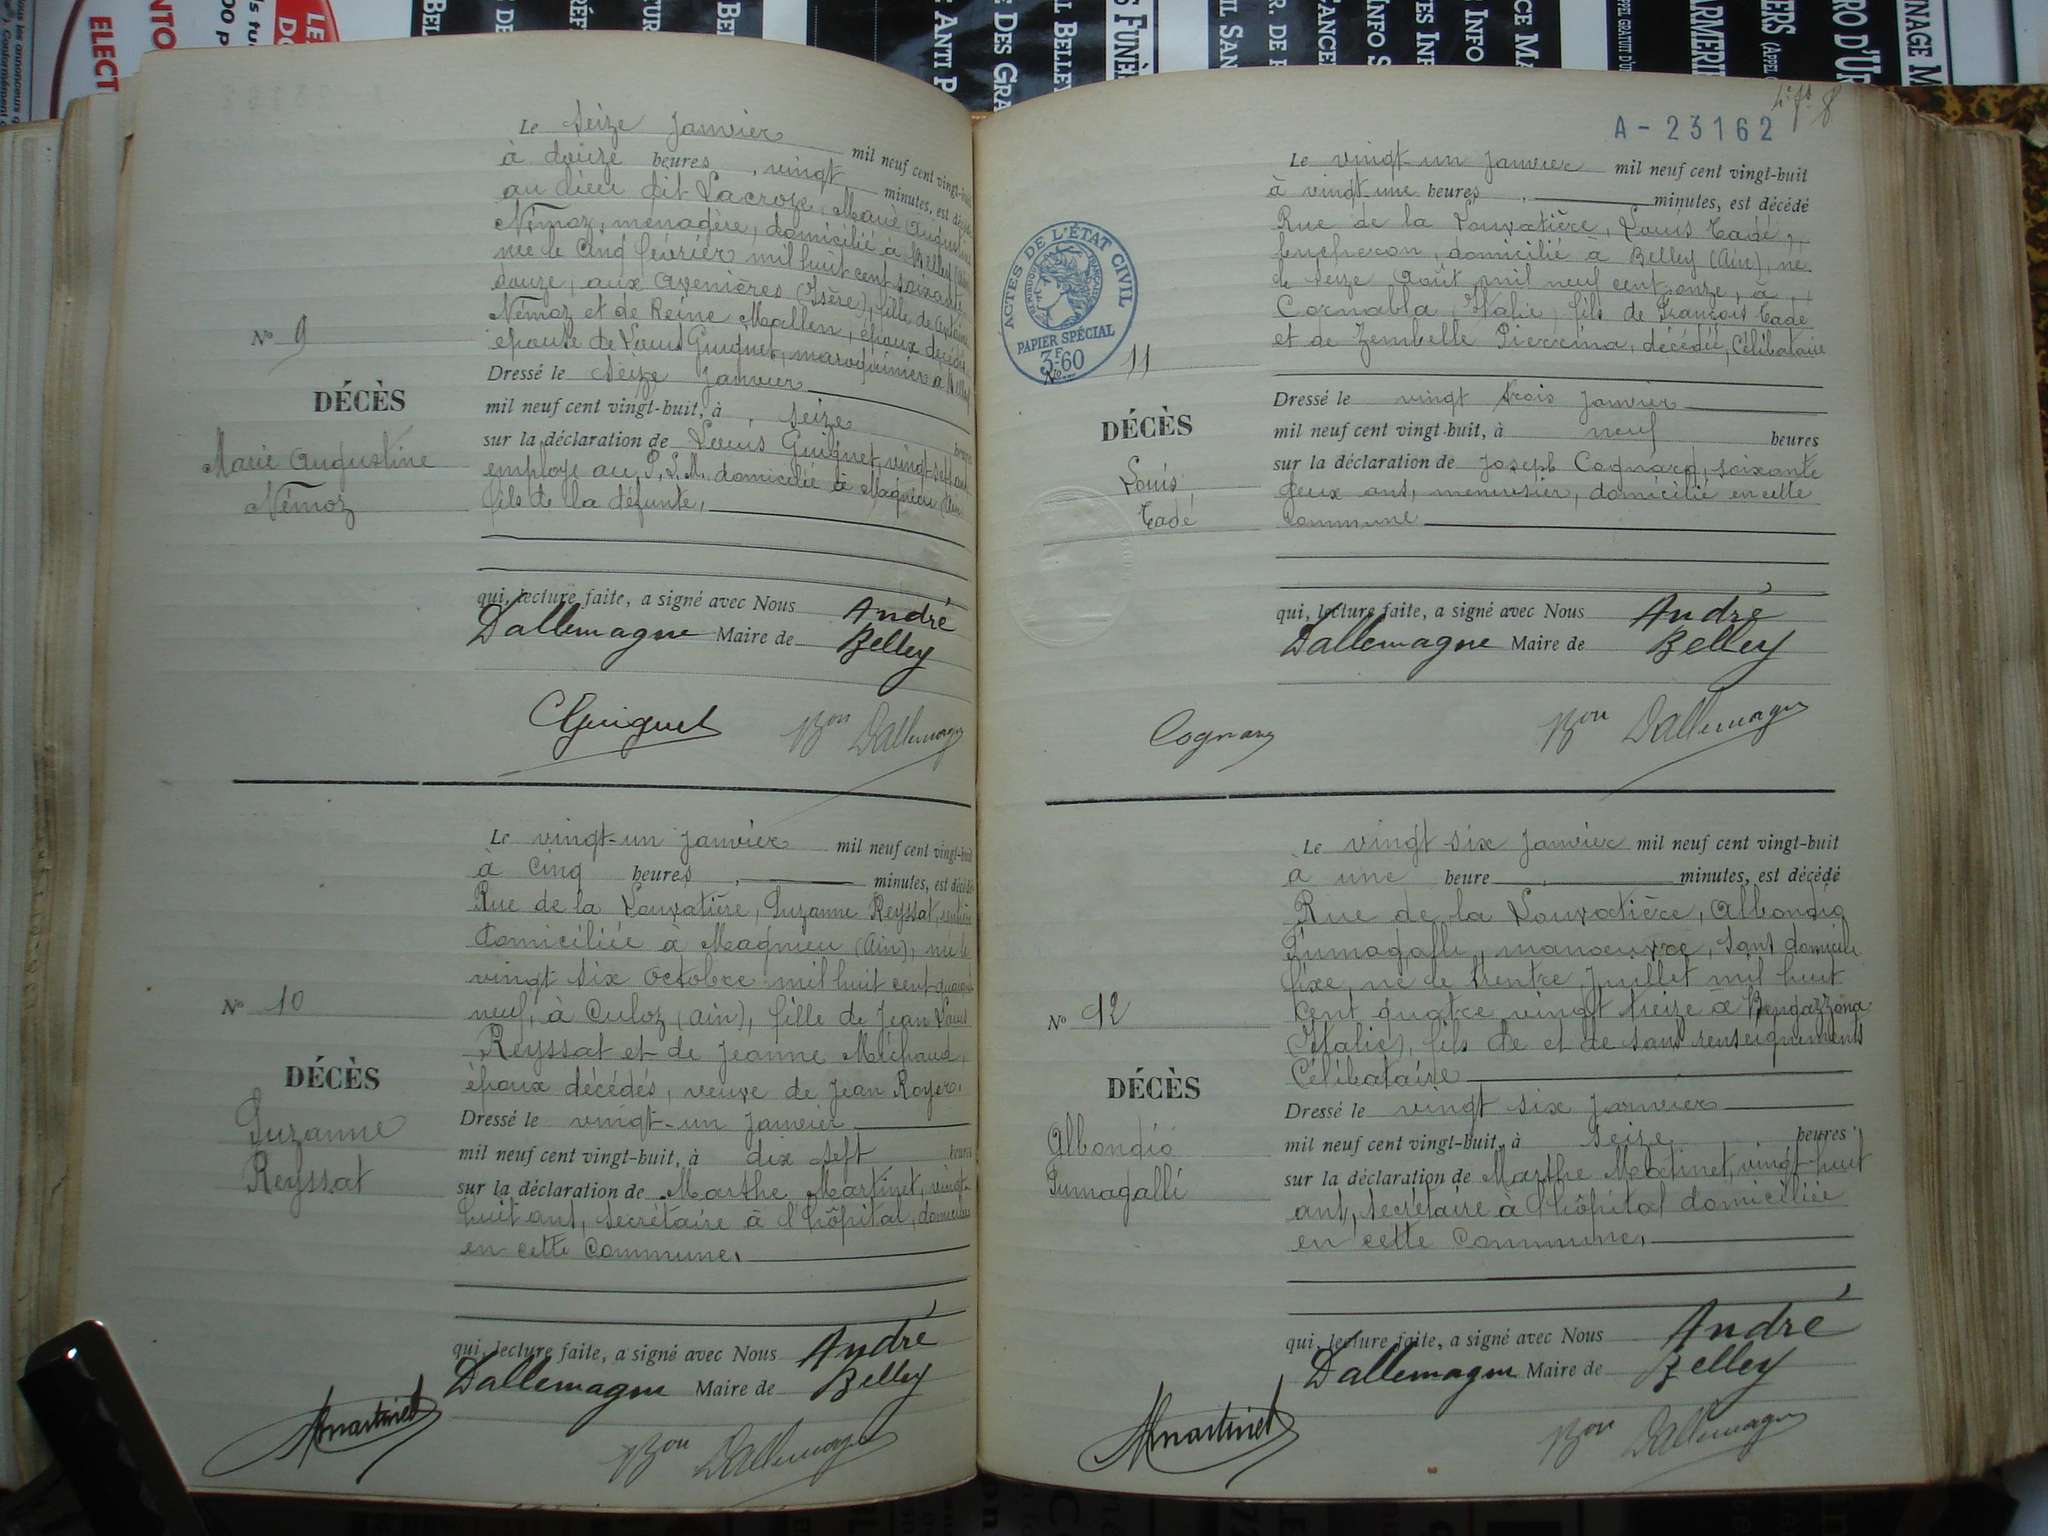 Le seize janvier mil neuf cent vingt-huit
à douze heures, vingt minutes, est décédée
au lieu dit Lacroze, Marie Augustine
Némoz, ménagère, domicilié à Belley (Ain)
née le cinq février mil huit cent soixante
douze, aux Avenières (Isère), fille de Antoine
Némoz et de Reine Magllen, époux décédés
épouse de Louis Guiguet, maroquinier à Belley
Dressé le seize janvier
mil neuf cent vingt-huit, à seize heures
sur la déclaration de Louis Guiguet, vingt-sept ans
employé au P.L.M. domicilié à Magnieu (Ain)
fils de la défunte,
qui, lecture faite, a signé avec Nous André
Dallemagne Maire de Belley
CGuiguet Bon Dallemagne
No 9
DÉCÈS
Marie Augustine
Némoz
Le vingt-un janvier mil neuf cent vingt-huit
à cinq heures, minutes, est décédée
Rue de la Louvatière, Suzanne Reyssat, rentière
domiciliée à Magnieu (Ain), née le
vingt six octobre mil huit cent quarante
neuf, à Culoz (Ain), fille de Jean Louis
Reyssat et de Jeanne Michaud,
époux décédés, veuve de Jean Royer.
Dressé le vingt-un janvier
mil neuf cent vingt-huit, à dix sept heures
sur la déclaration de Marthe Martinet, vingt-
huit ans, secrétaire à l'hôpital, domiciliée
en cette commune.
qui, lecture faite, a signé avec Nous André
Dallemagne Maire de Belley
Mmartinet Bon Dallemagne
No 10
DÉCÈS
Suzanne
Reyssat
A-23162
8
ACTES DE L'ÉTAT CIVIL
RÉPUBLIQUE FRANÇAISE
PAPIER SPÉCIAL
3F60
Le vingt-un janvier mil neuf cent vingt-huit
à vingt-une heures, minutes, est décédé
Rue de la Louvatière, Louis Cadé,
bucheron, domicilié à Belley (Ain), né
le seize Août mil neuf cent onze, à
Cornabla, Italie, fils de François Cadé
et de Zembelle Pierrina, décédée, Célibataire
Dressé le vingt trois janvier
mil neuf cent vingt-huit, à neuf heures
sur la déclaration de Joseph Cognard, soixante
deux ans, menuisier, domicilié en cette
commune
qui, lecture faite, a signé avec Nous André
Dallemagne Maire de Belley
Cognard Bon Dallemagne
No 11
DÉCÈS
Louis
Cadé
Le vingt six janvier mil neuf cent vingt-huit
à une heure, minutes, est décédé
Rue de la Louvatière, Albondio
Fumagalli, manoeuvre, sans domicile
fixe, né le trente juillet mil huit
cent quatre vingt treize à Bengazzona
(Italie), fils de et de sans renseignements
Célibataire
Dressé le vingt six janvier
mil neuf cent vingt-huit, à seize heures
sur la déclaration de Marthe Martinet, vingt-huit
ans, secrétaire à l'hôpital domiciliée
en cette commune.
qui, lecture faite, a signé avec Nous André
Dallemagne Maire de Belley
Mmartinet Bon Dallemagne
No 12
DÉCÈS
Albondio
Fumagalli